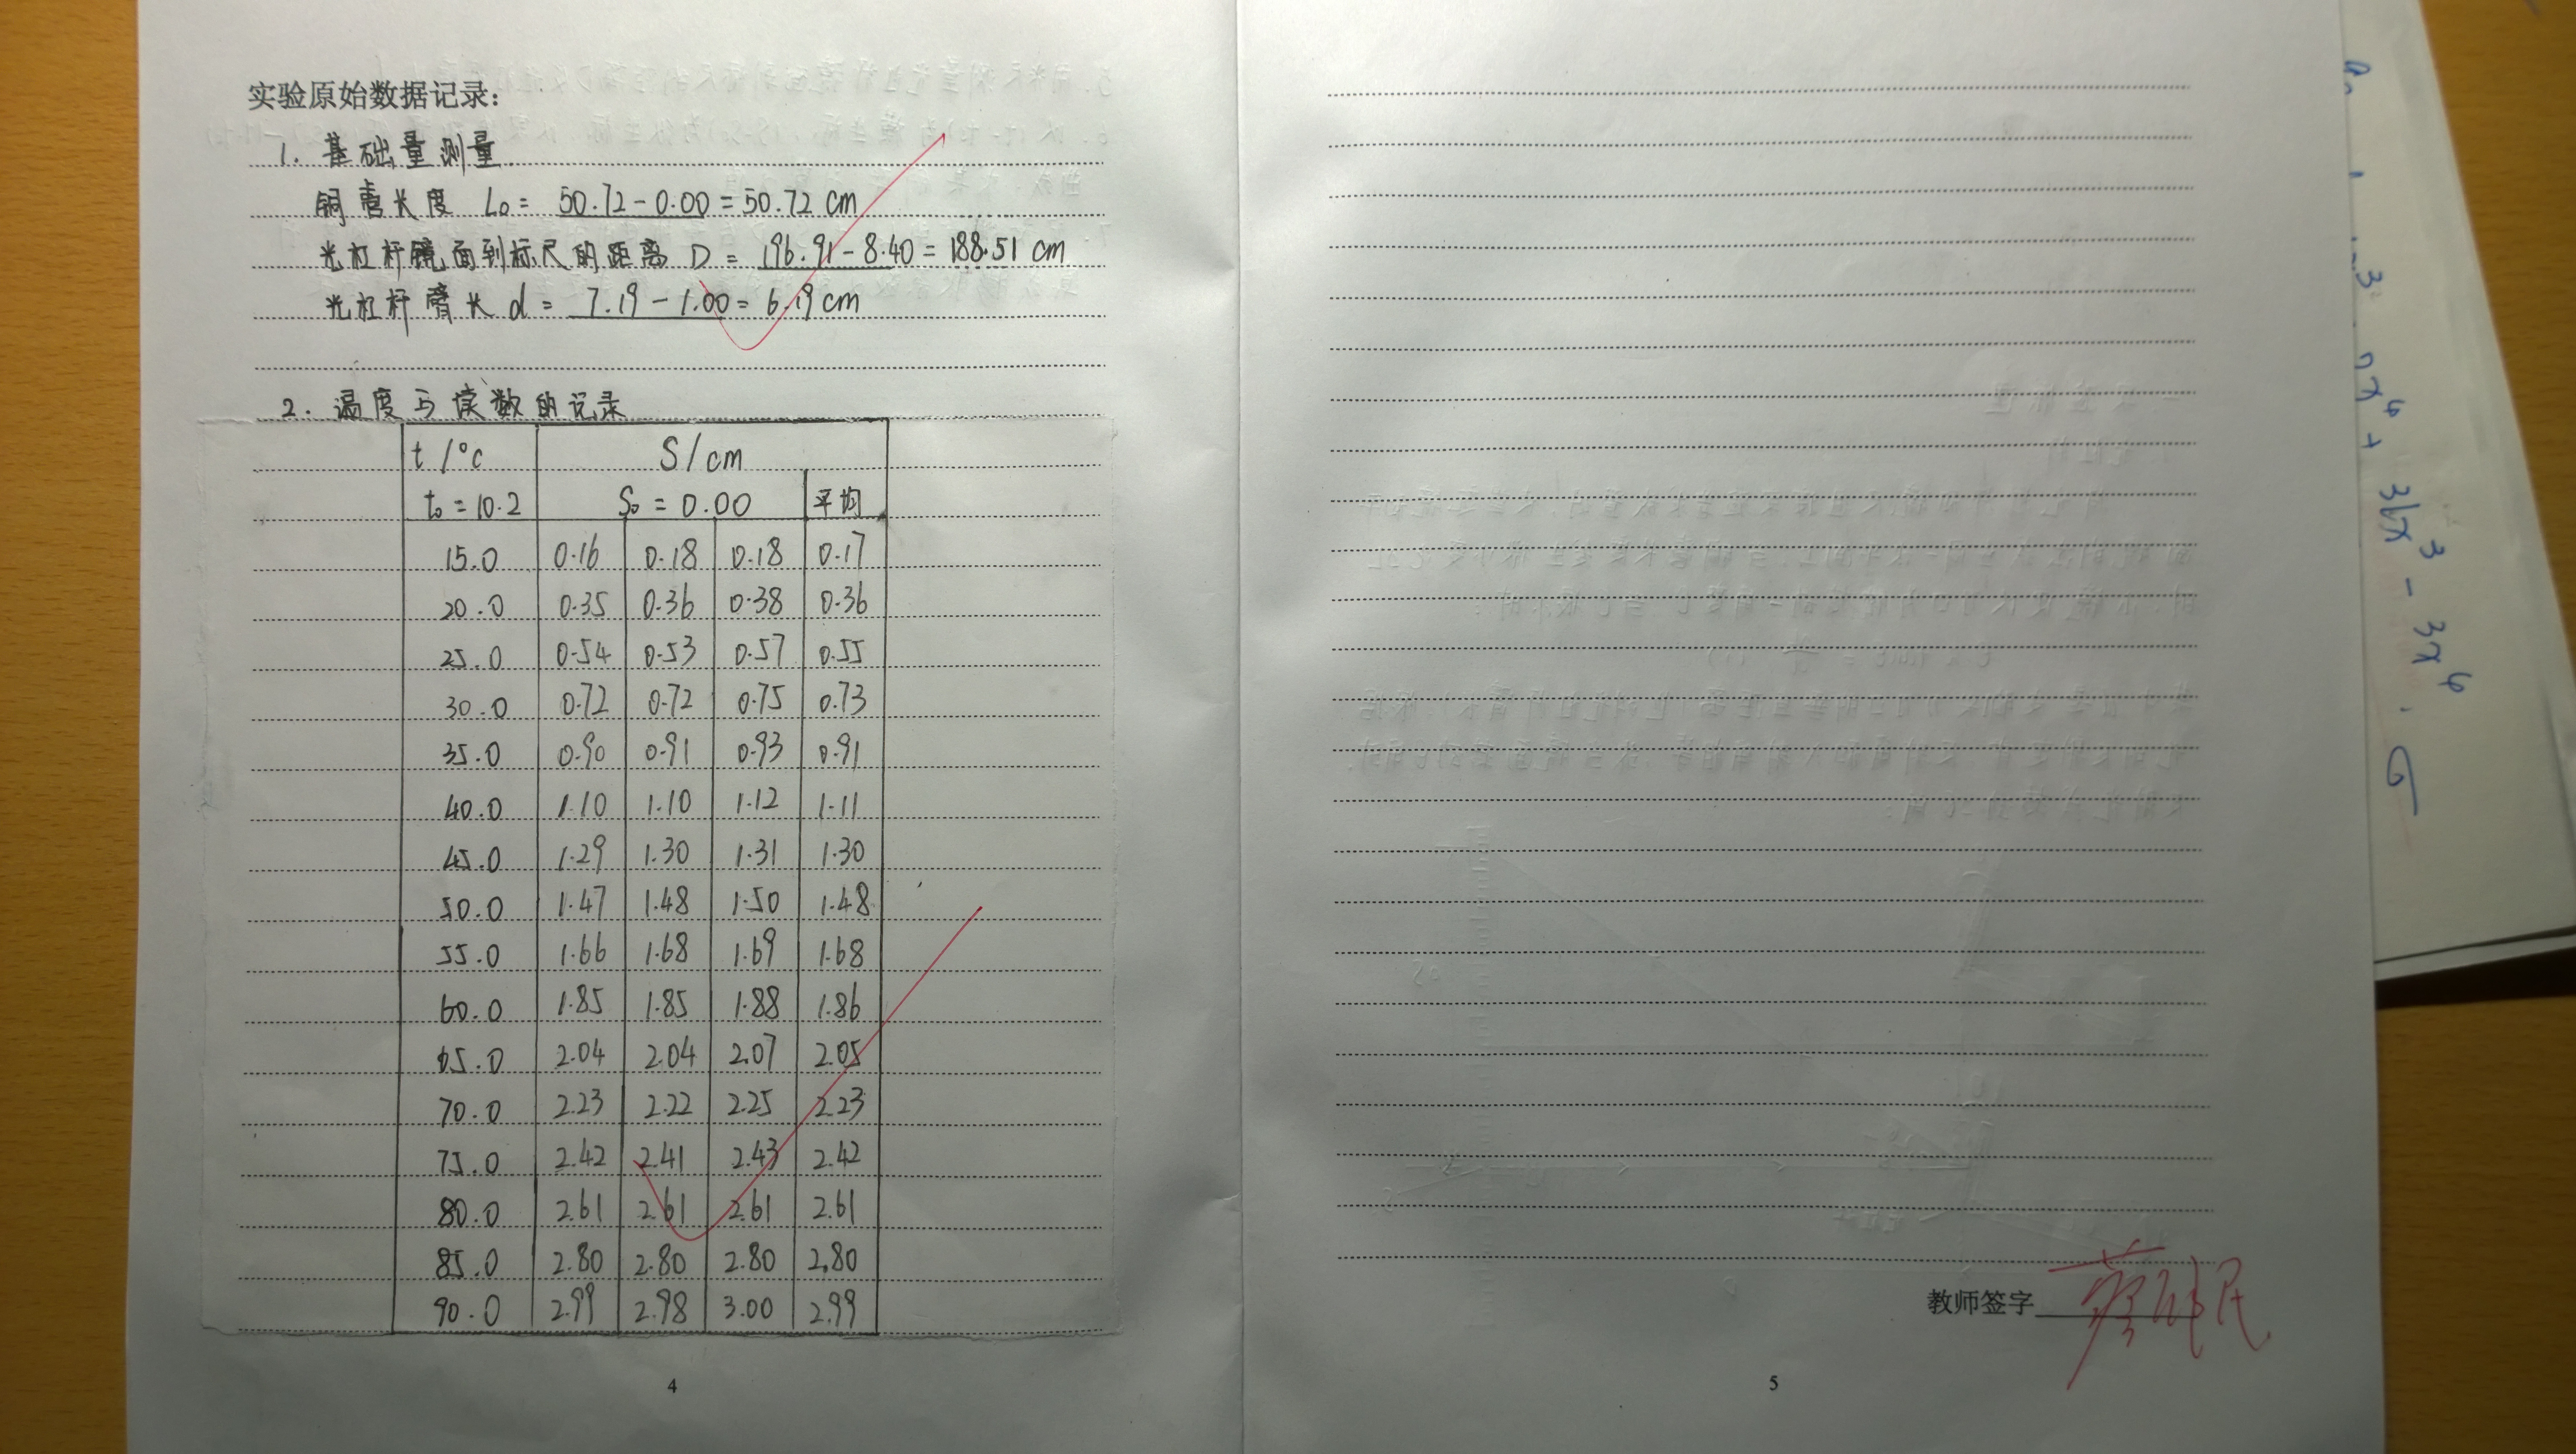 实验原始数据记录：
1. 基础量测量
铜管长度 L₀ = 50.72 - 0.00 = 50.72 cm
光杠杆镜面到标尺的距离 D = 196.91 - 8.40 = 188.51 cm
光杠杆臂长 d = 7.19 - 1.00 = 6.19 cm
2. 温度与读数的记录
t /°C S/cm
t₀ = 10.2 S₀ = 0.00 平均
15.0 0.16 0.18 0.18 0.17
20.0 0.35 0.36 0.38 0.36
25.0 0.54 0.53 0.57 0.55
30.0 0.72 0.72 0.75 0.73
35.0 0.90 0.91 0.93 0.91
40.0 1.10 1.10 1.12 1.11
45.0 1.29 1.30 1.31 1.30
50.0 1.47 1.48 1.50 1.48
55.0 1.66 1.68 1.69 1.68
60.0 1.85 1.85 1.88 1.86
65.0 2.04 2.04 2.07 2.05
70.0 2.23 2.22 2.25 2.23
75.0 2.42 2.41 2.43 2.42
80.0 2.61 2.61 2.61 2.61
85.0 2.80 2.80 2.80 2.80
90.0 2.99 2.98 3.00 2.99
4
教师签字
5
+ 36x³ - 3x⁶